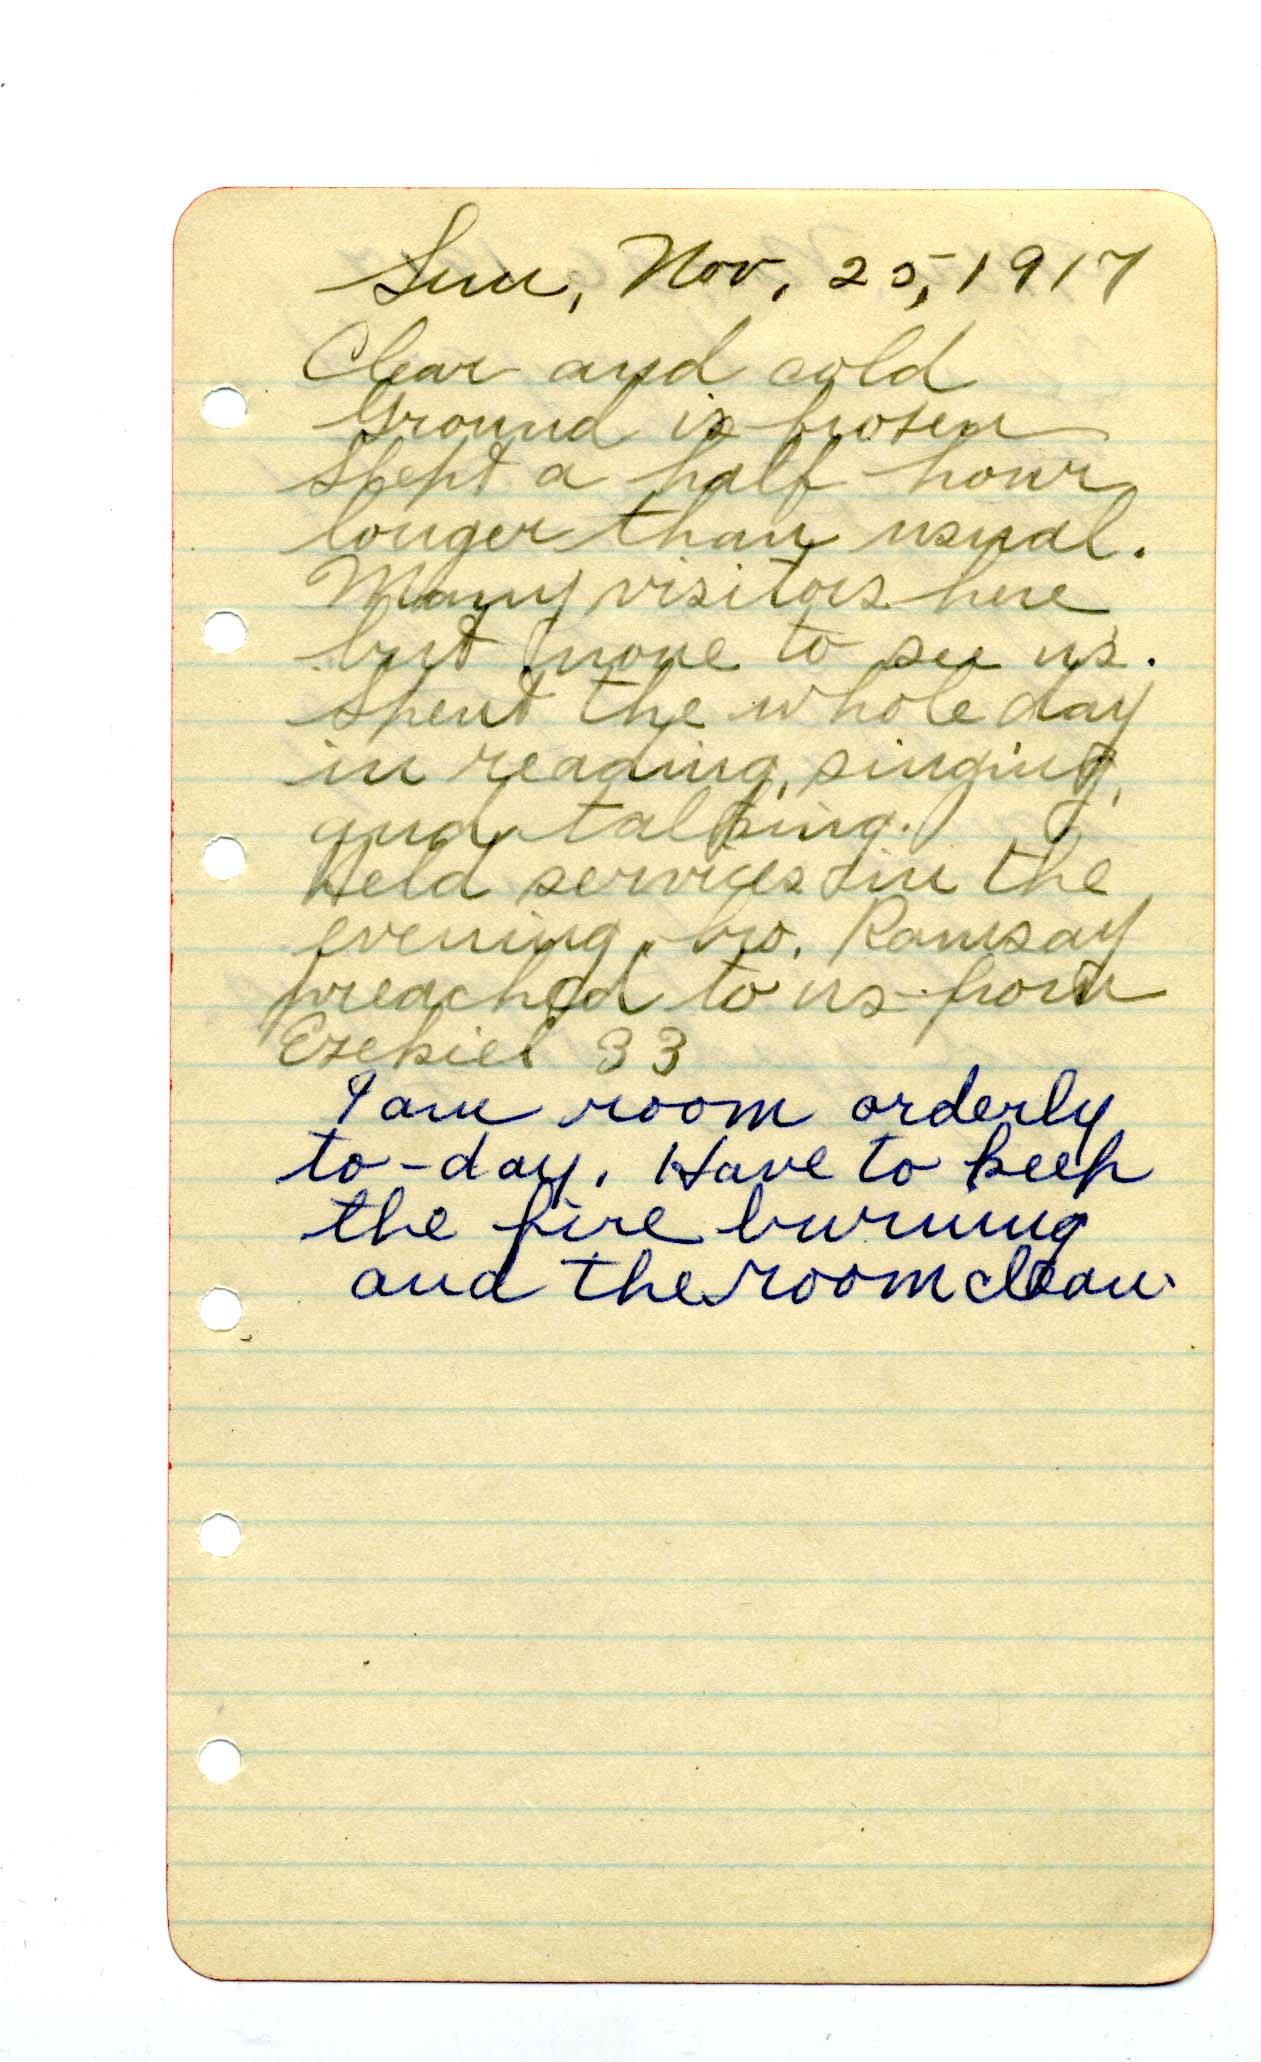 Sun, Nov, 25, 1917
Clear and cold
Ground is frozen
Slept a half hour
longer than usual.
Many visitors here
but none to see us.
Spent the whole day
in reading, singing,
and talking.
Held services in the
evening, bro. Ramsay
preached to us from
Ezekiel 33
I am room orderly
to-day. Have to keep
the fire burning
and the room clean.